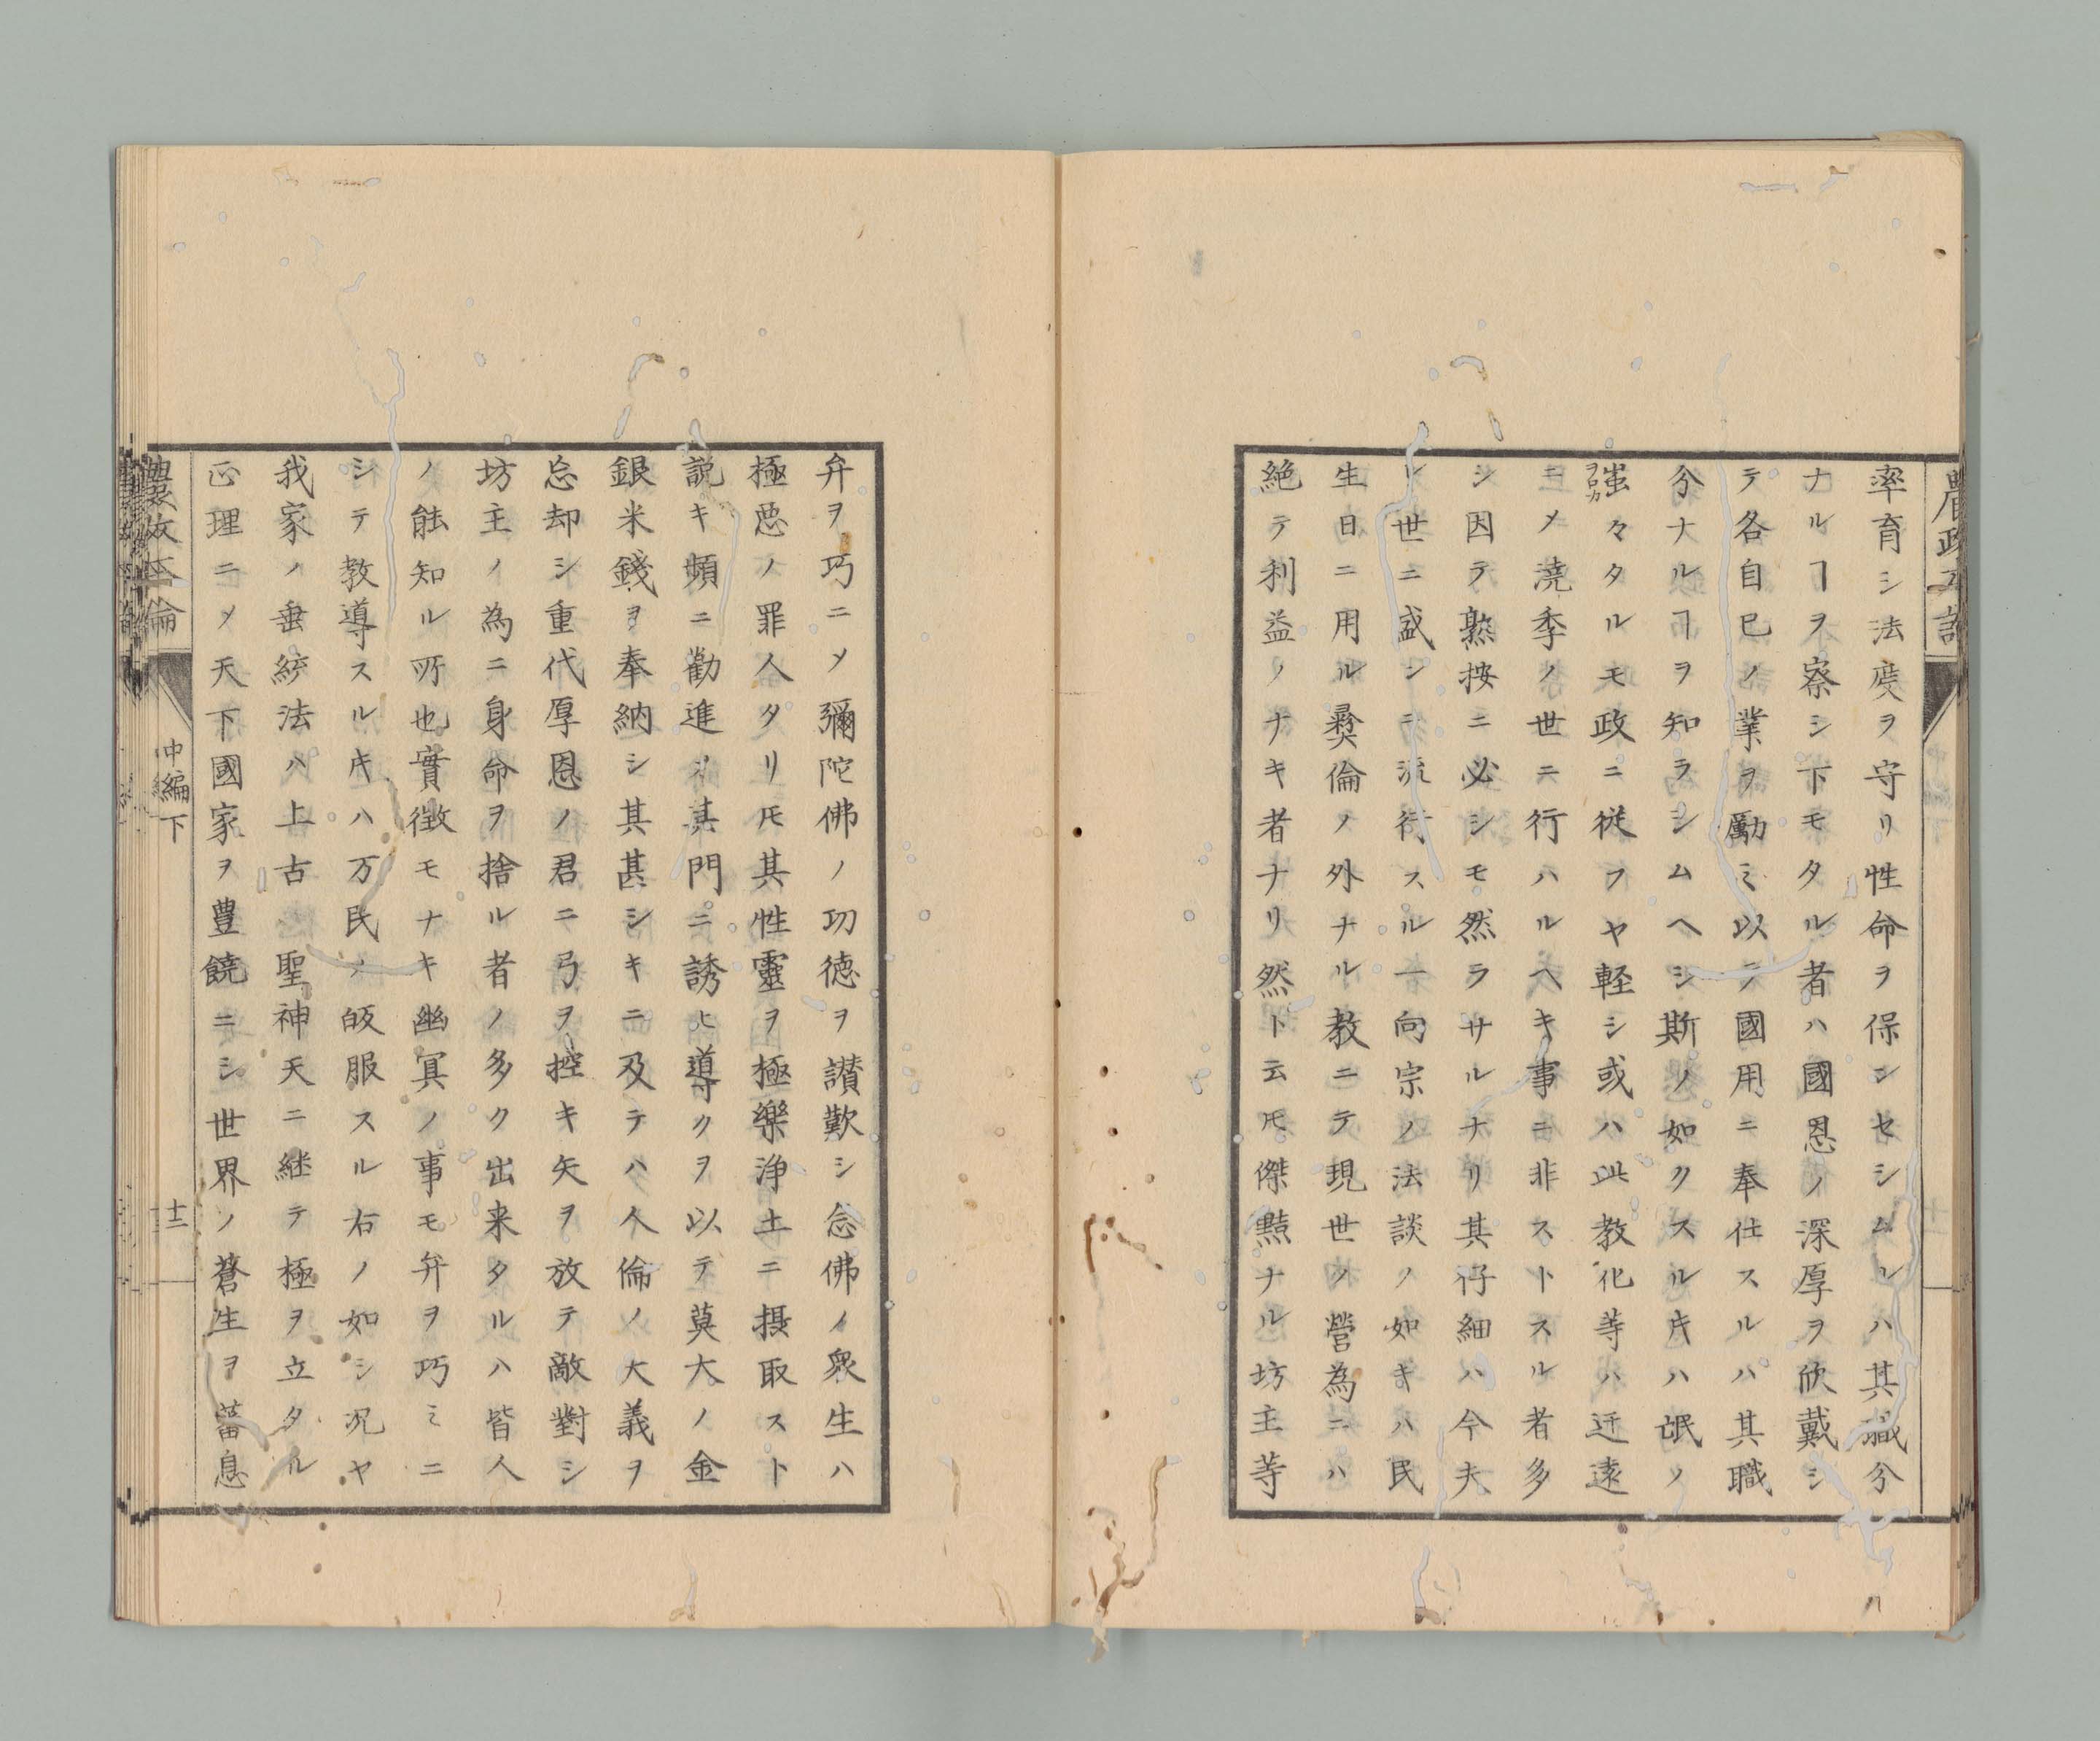 農政本論
率育シ法度ヲ守リ性命ヲ保ンセシムレハ其職分
ナルヿヲ察シ下モタル者ハ國恩ノ深厚ヲ欣戴シ
テ各自己ノ業ヲ勵ミ以テ國用ニ奉仕スルハ其職
分ナルヿヲ知ラシムヘシ斯ノ如クスル片ハ氓ノ
蚩々タルモ政ニ従フヤ軽シ或ハ此教化等ハ迂遠
ヲロカ
ニメ澆季ノ世ニ行ハルヘキ事ニ非ストスル者多
シ因テ熟按ニ必シモ然ラサルナリ其仔細ハ今夫
レ世ニ盛ンニ流行スル一向宗ノ法談ノ如キハ民
生日ニ用ル彜倫ノ外ナル教ニテ現世ノ營為ニハ
絶テ利益ノナキ者ナリ然ト云𪜈傑黠ナル坊主等
弁ヲ巧ニメ彌陀佛ノ功徳ヲ讃歎シ念佛ノ衆生ハ
極悪ノ罪人タリ𪜈其性靈ヲ極樂浄土ニ摂取スト
説キ頻ニ勸進シ其門ニ誘ヒ導クヲ以テ莫大ノ金
銀米錢ヲ奉納シ其甚シキニ及テハ人倫ノ大義ヲ
忘却シ重代厚恩ノ君ニ弓ヲ控キ矢ヲ放テ敵對シ
坊主ノ為ニ身命ヲ捨ル者ノ多ク出来タルハ皆人
ノ能知ル所也實徴モナキ幽冥ノ事モ弁ヲ巧ミニ
シテ教導スル片ハ万民ノ皈服スル右ノ如シ况ヤ
我家ノ垂統法ハ上古聖神天ニ継テ極ヲ立タル
正理ニメ天下國家ヲ豊饒ニシ世界ノ蒼生ヲ蕃息
農政本論
中編下
十二